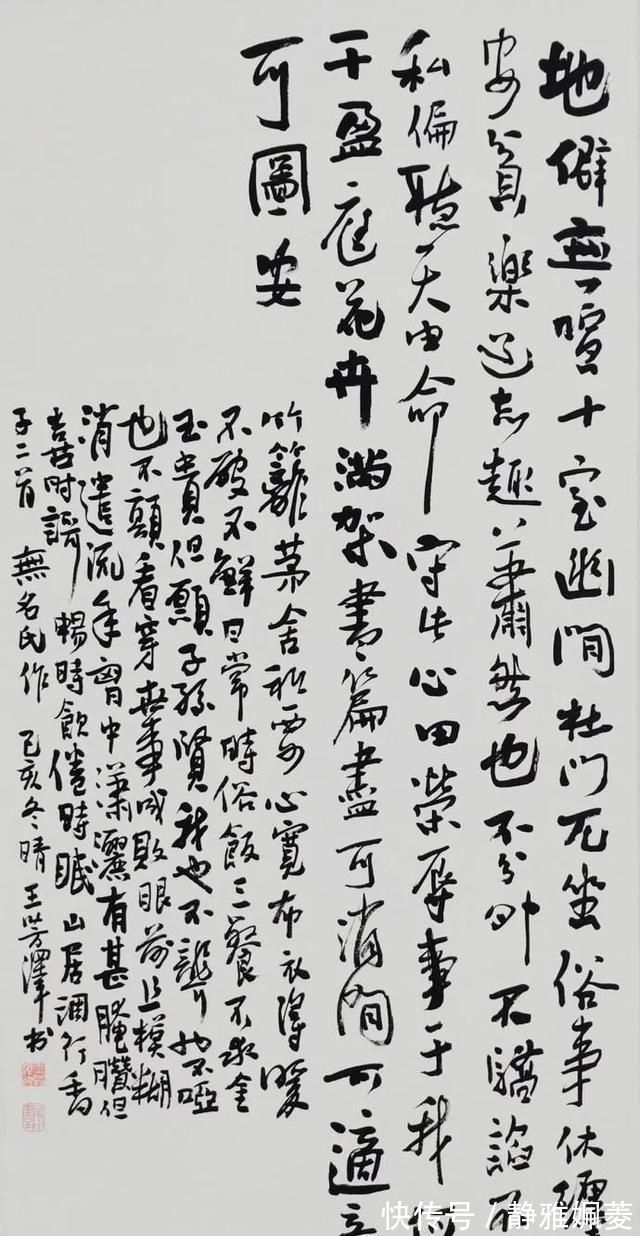 地僻無喧十室幽閒杜門兀坐俗事休纏
安貧樂道志趣蕭然也不分外不驕諂不
私偏聽天由命守此心田榮辱事于我
干盈庭花卉滿架書篇盡可消閒可適
可圖安
竹籬茅舍秪要心寬布衣得暖
不破不鮮日常時俗飯三餐不求金
玉貴但願子孫賢我也不聾也不啞
也不顛看穿世事成敗眼前且模糊
消遣流年胸中瀟灑有甚醃臢但
喜時謌暢時飲倦時眠山居調行香
子二首 無名氏作 己亥冬晴 王澤書
快传号/静雅姵菱